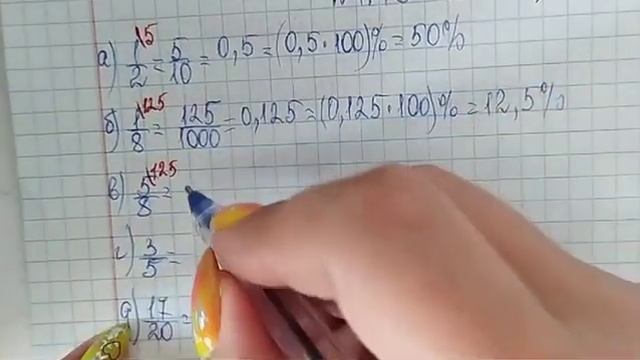 а) 1/2 ^5 = 5/10 = 0,5 = (0,5 · 100)% = 50%
б) 1/8 ^125 = 125/1000 = 0,125 = (0,125 · 100)% = 12,5%
в) 5/8 ^125 =
г) 3/5 =
д) 17/20 =